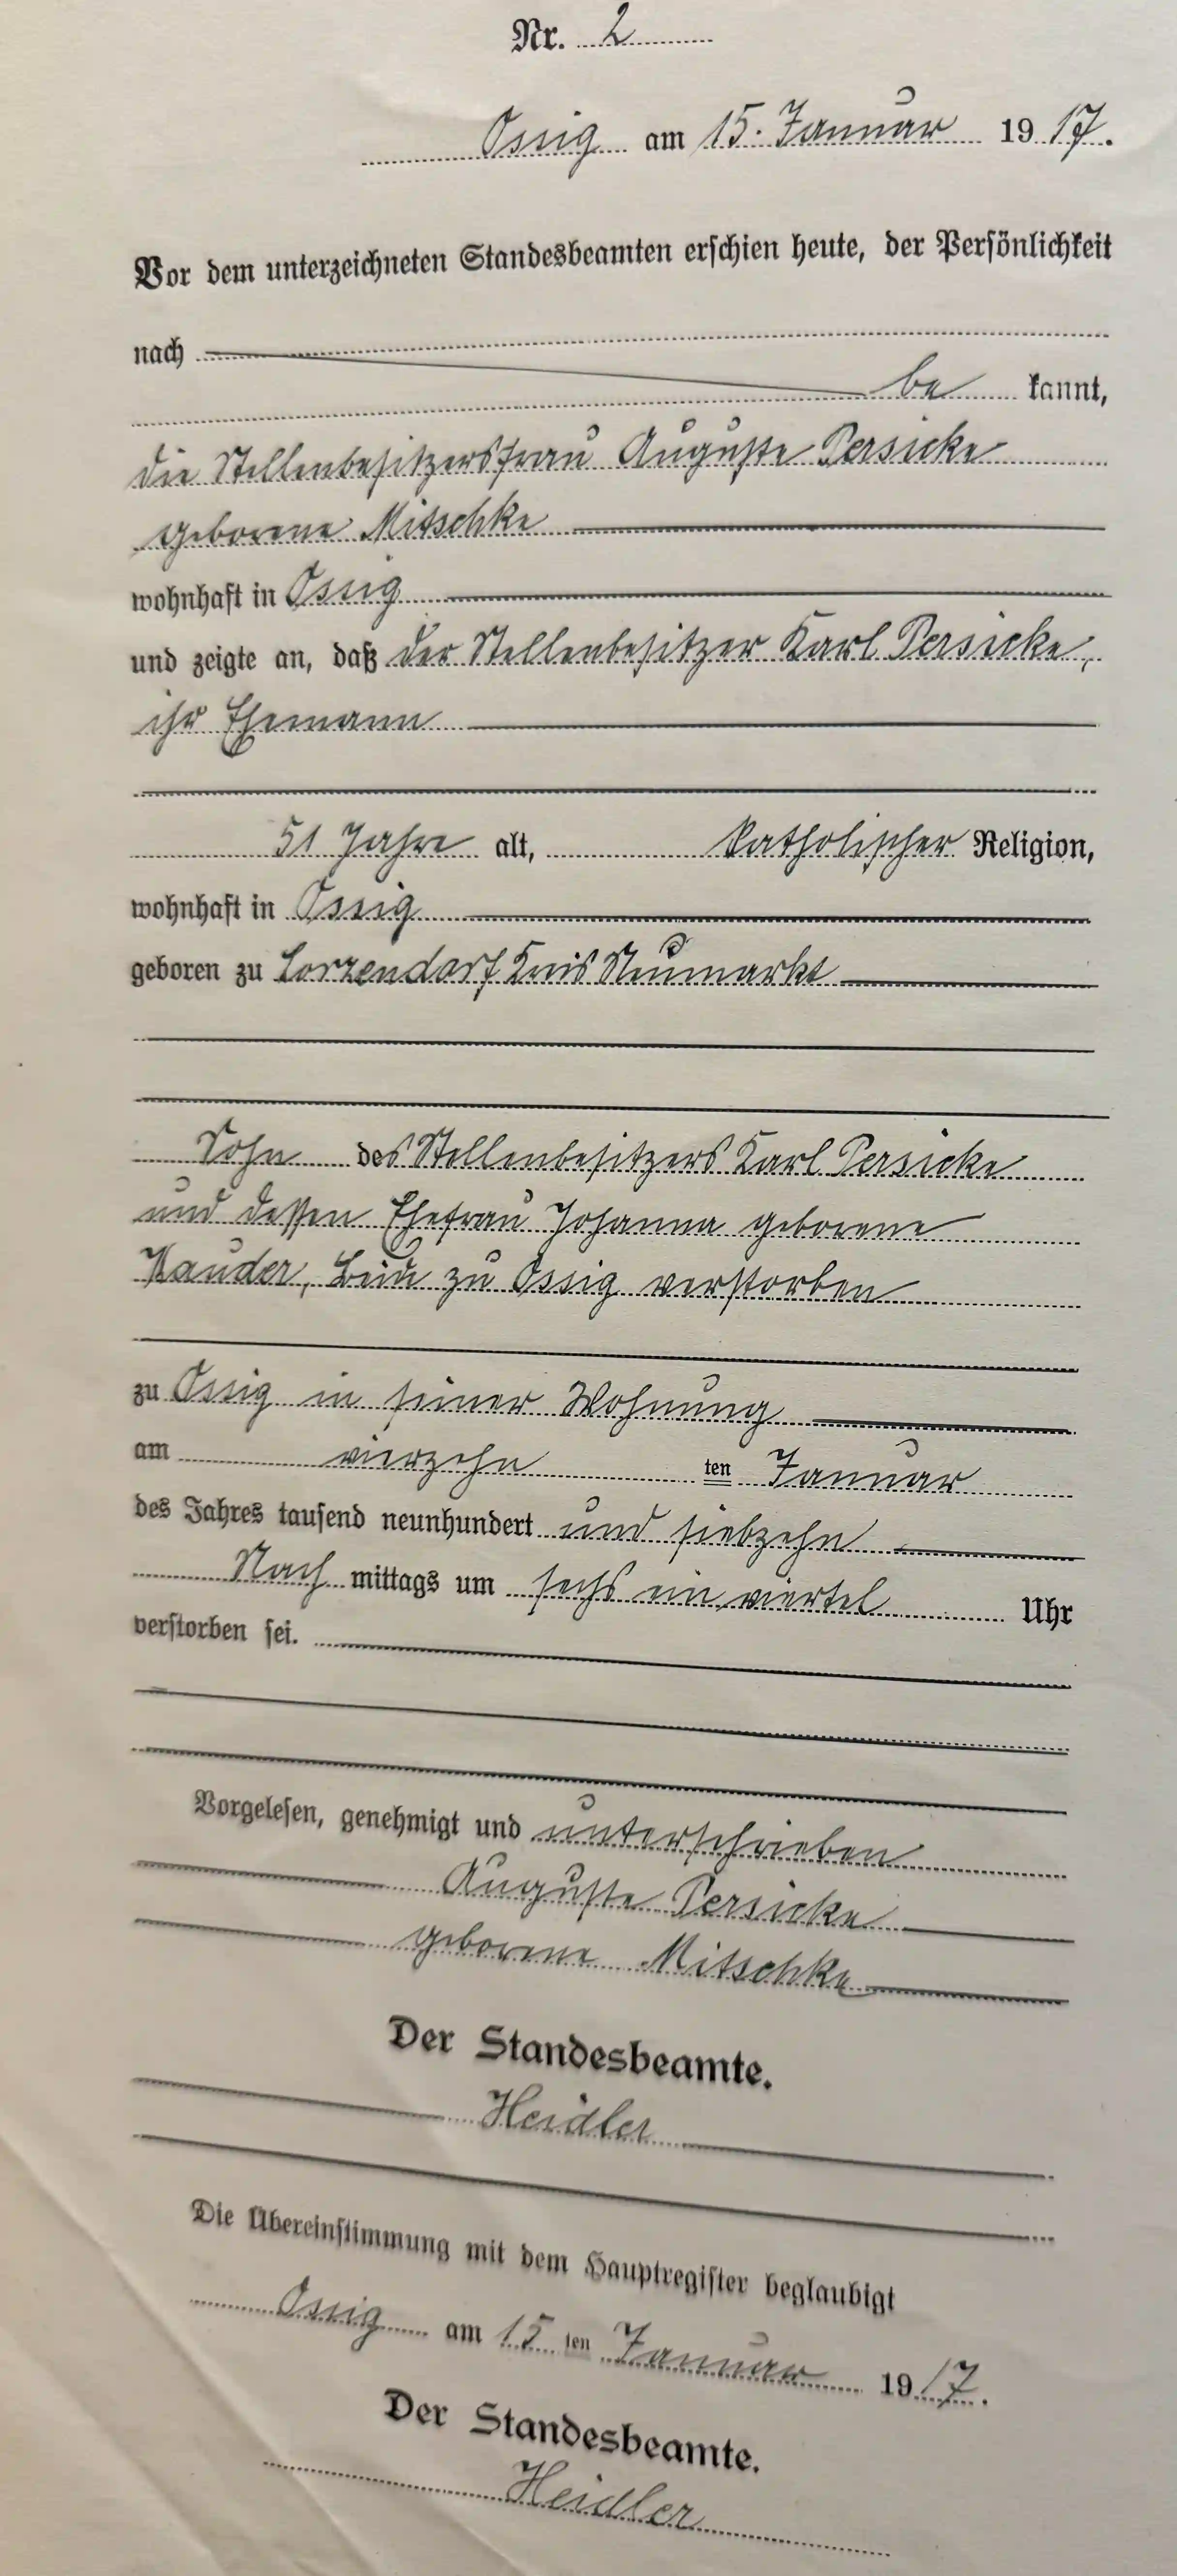 Nr. 2
Ossig am 15. Januar 1917.
Vor dem unterzeichneten Standesbeamten erschien heute, der Persönlichkeit
nach
be kannt,
die Stellenbesitzersfrau Auguste Persicke
geborene Mitschke
wohnhaft in Ossig
und zeigte an, daß der Stellenbesitzer Karl Persicke,
ihr Ehemann
51 Jahre alt, katholischer Religion,
wohnhaft in Ossig
geboren zu Lorzendorf Kreis Neumarkt
Sohn des Stellenbesitzers Karl Persicke
und dessen Ehefrau Johanna geborene
Kauder, beide zu Ossig verstorben
zu Ossig in seiner Wohnung
am vierzehn ten Januar
des Jahres tausend neunhundert und siebzehn
Nach mittags um sechs ein viertel Uhr
verstorben sei.
Vorgelesen, genehmigt und unterschrieben
Auguste Persicke
geborene Mitschke
Der Standesbeamte.
Heidler
Die Übereinstimmung mit dem Hauptregister beglaubigt
Ossig am 15 ten Januar 1917.
Der Standesbeamte.
Heidler